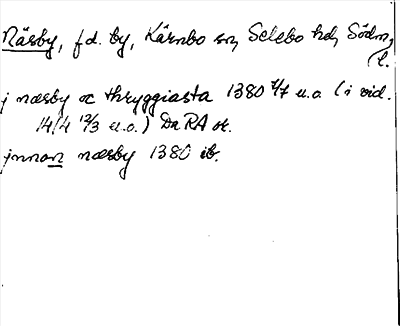 Näsby, f.d. by, Kärnbo sn, Selebo hd, Södm.
l.
j næsby oc thryggiasta 1380 2/7 u.o. (i vid.
14/4 12/3 u.o.) Da RA or.
jnnan næsby 1380 ib.